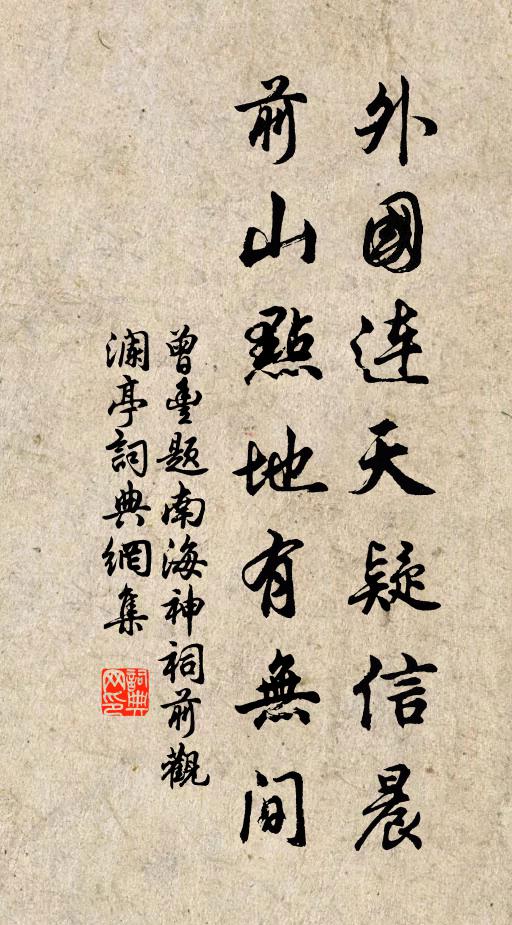 外國連天疑信晨
前山點地有無間
曾豐題南海神祠前觀
瀾亭詞典網集
詞典网印